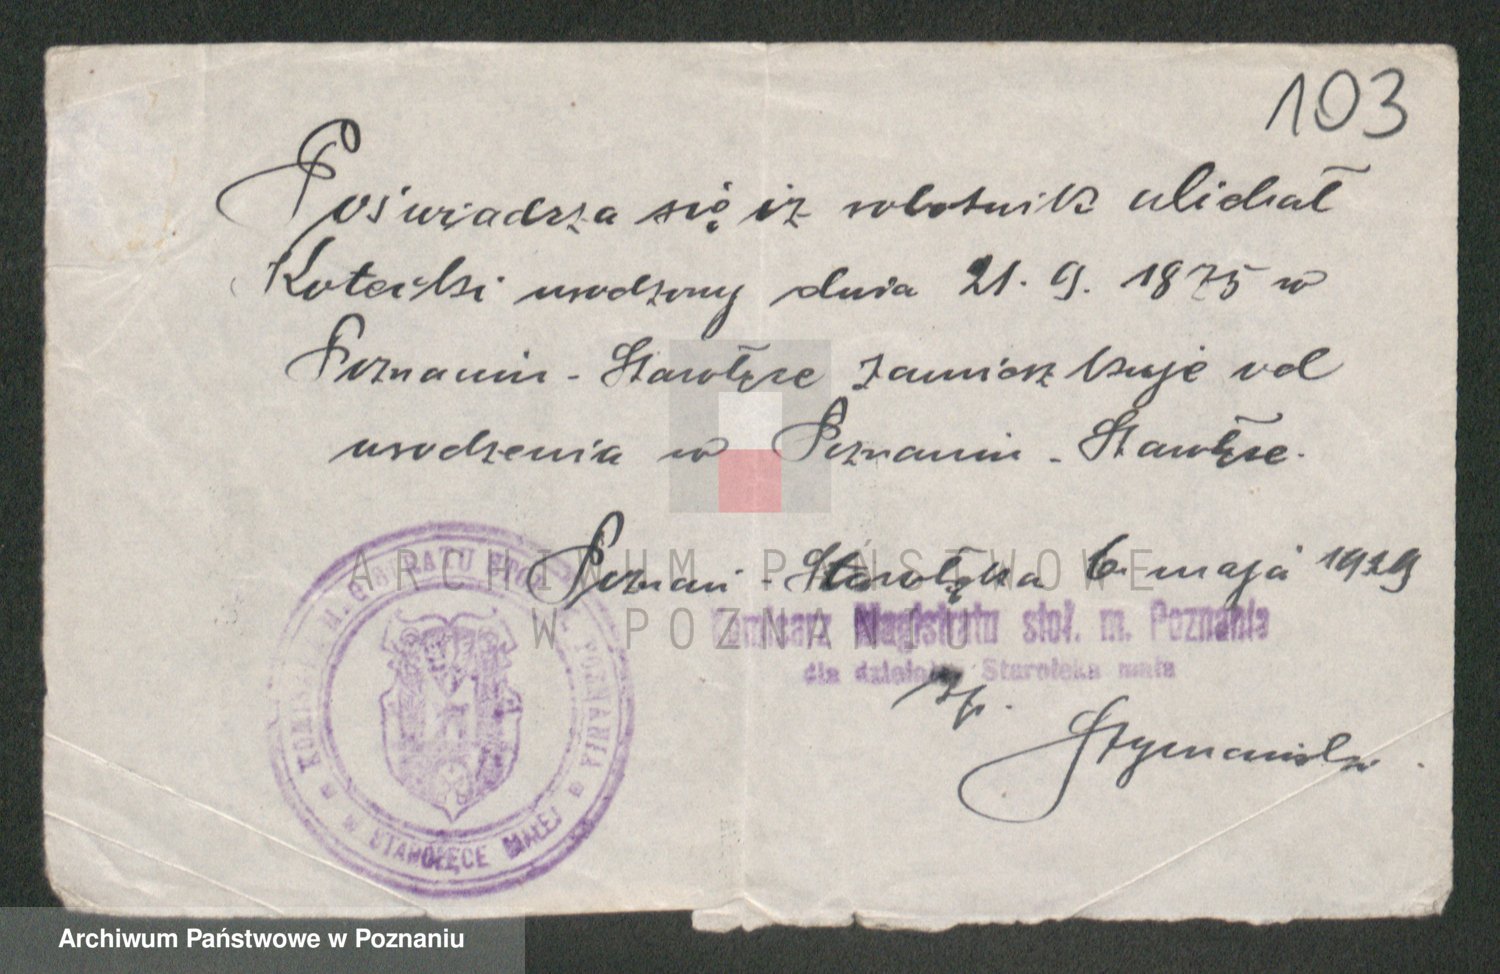 103
Poświadsza się iż robotnik Michał
Kotecki urodzony dnia 21. 9. 1875 w
Poznaniu - Starołęce zamieszkuje od
urodzenia w Poznaniu - Starołęce.
Poznań - Starołęka 6. maja 1929
Komisarz Magistratu stoł. m. Poznania
dla dzielnicy Starołęka mała
KOMISARZ M. STOŁ. POZNANIA
W STAROŁĘCE MAŁEJ
ARCHIWUM PAŃSTWOWE
W POZNANIU
Archiwum Państwowe w Poznaniu